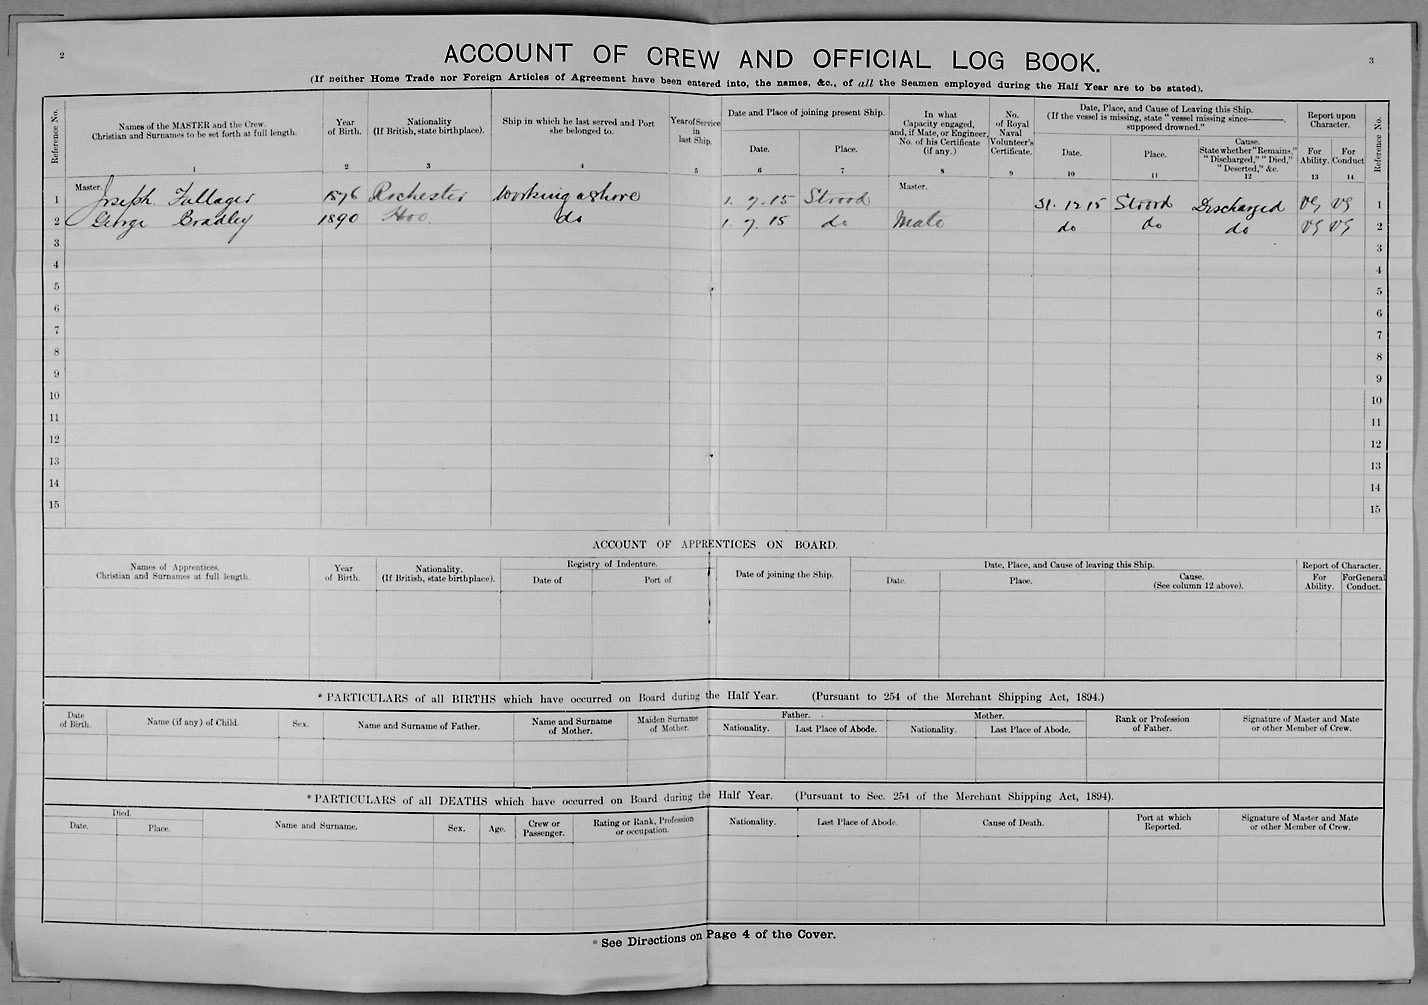 2
3
ACCOUNT OF CREW AND OFFICIAL LOG BOOK.
(If neither Home Trade nor Foreign Articles of Agreement have been entered into, the names, &c., of all the Seamen employed during the Half Year are to be stated).
Reference No.
Names of the MASTER and the Crew.
Christian and Surnames to be set forth at full length.
1
Year of Birth.
2
Nationality
(If British, state birthplace).
3
Ship in which he last served and Port she belonged to.
4
Year of Service in last Ship.
5
Date and Place of joining present Ship.
Date.
6
Place.
7
In what Capacity engaged, and, if Mate, or Engineer, No. of his Certificate (if any.)
8
No. of Royal Naval Volunteer's Certificate.
9
Date, Place, and Cause of Leaving this Ship.
(If the vessel is missing, state "vessel missing since———, supposed drowned."
Date.
10
Place.
11
Cause.
State whether "Remains," "Discharged," "Died," "Deserted," &c.
12
Report upon Character.
For Ability.
13
For Conduct
14
Reference No.
1 Master. Joseph Fullager 1876 Rochester Working ashore 1. 7. 15 Strood Master. 31. 12 15 Strood Discharged VG VG 1
2 George Bradley 1890 Hoo do 1. 7. 15 do Mate do do do VG VG 2
3 3
4 4
5 5
6 6
7 7
8 8
9 9
10 10
11 11
12 12
13 13
14 14
15 15
ACCOUNT OF APPRENTICES ON BOARD.
Names of Apprentices.
Christian and Surnames at full length.
Year of Birth.
Nationality.
(If British, state birthplace).
Registry of Indenture.
Date of
Port of
Date of joining the Ship.
Date, Place, and Cause of leaving this Ship.
Date.
Place.
Cause.
(See column 12 above).
Report of Character.
For Ability.
For General Conduct.
* PARTICULARS of all BIRTHS which have occurred on Board during the Half Year. (Pursuant to 254 of the Merchant Shipping Act, 1894.)
Date of Birth.
Name (if any) of Child.
Sex.
Name and Surname of Father.
Name and Surname of Mother.
Maiden Surname of Mother.
Father.
Nationality.
Last Place of Abode.
Mother.
Nationality.
Last Place of Abode.
Rank or Profession of Father.
Signature of Master and Mate or other Member of Crew.
* PARTICULARS of all DEATHS which have occurred on Board during the Half Year. (Pursuant to Sec. 254 of the Merchant Shipping Act, 1894).
Died.
Date.
Place.
Name and Surname.
Sex.
Age.
Crew or Passenger.
Rating or Rank, Profession or occupation.
Nationality.
Last Place of Abode.
Cause of Death.
Port at which Reported.
Signature of Master and Mate or other Member of Crew.
* See Directions on Page 4 of the Cover.